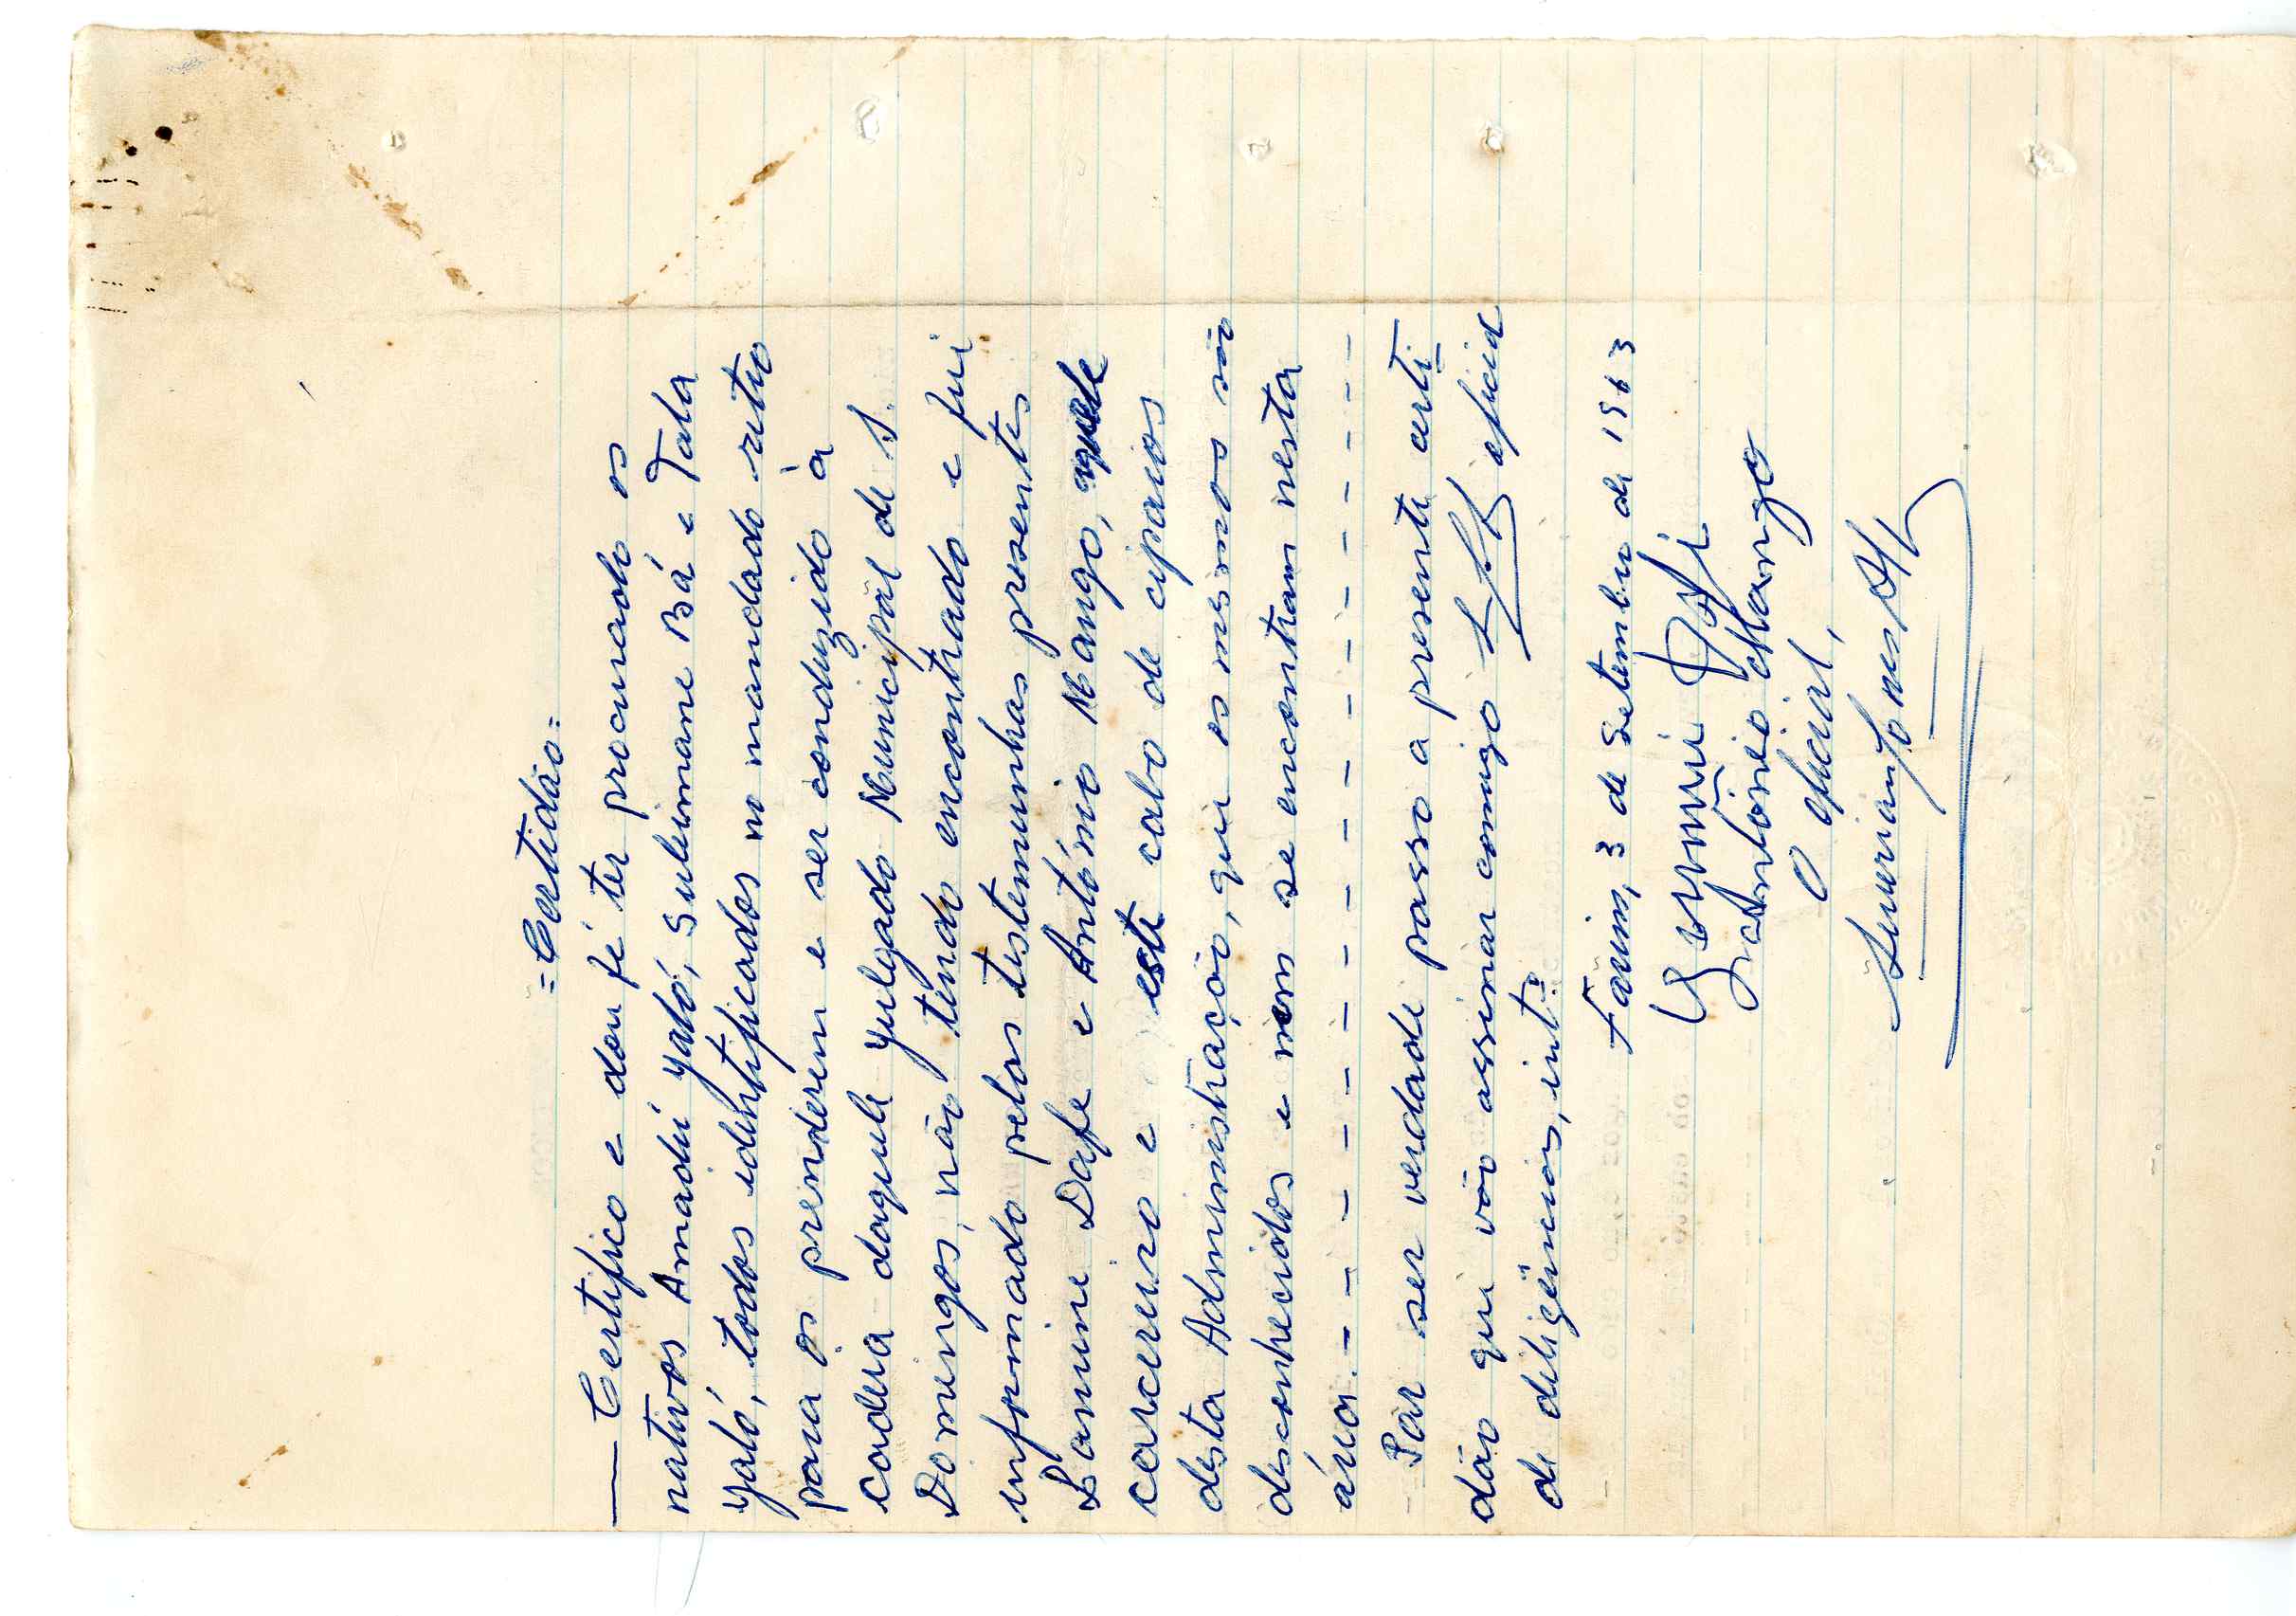 = Certidão =
— Certifico e dou fé ter procurado os
nativos Amadú Yaló, Suleimane Bá e Tala
Yaló, todos identificados no mandado retro
para os prenderem e ser conduzido à
cadeia daquele Julgado Municipal de S.
Domingos, não tendo encontrado e fui
informado pelas testemunhas presentes
Lamine Dafe e António Mango, aquele
carcereiro e este cabo de cipaios
desta Administração, que os mesmos são
desconhecidos e nem se encontram nesta
área. - - - - - - - - - - - - - -
- Por ser verdade passo a presente certi
dão que vão assinar comigo oficial
de diligências, int.º
Farim, 3 de Setembro de 1963
António Mango
O oficial,